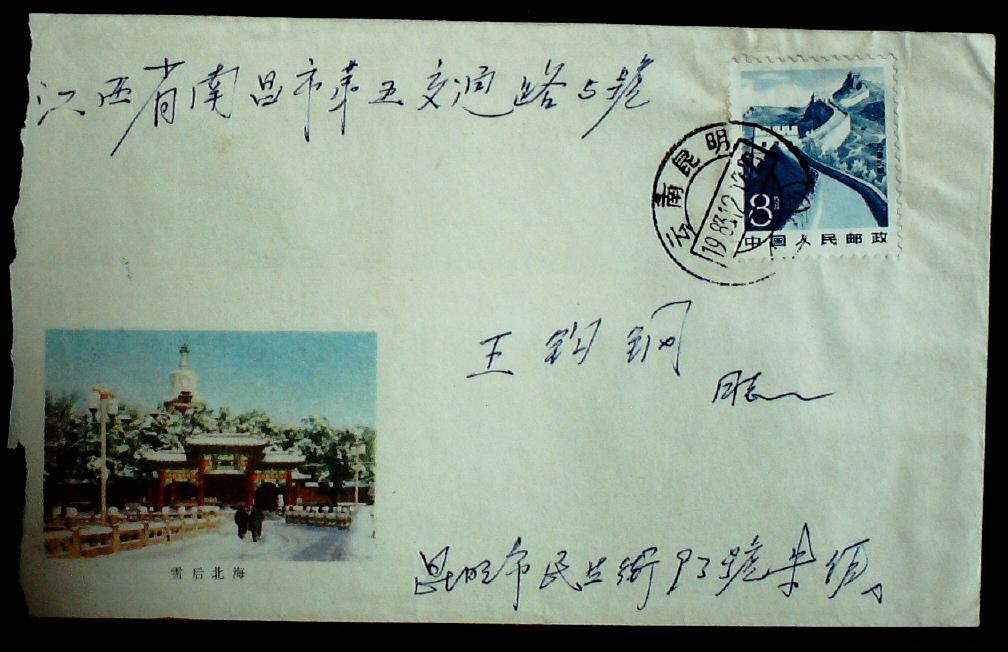 江西省南昌市第五交通路5號
云南昆明
1983.12
8
中国人民邮政
王鈞钢
同志
雪后北海
昆明市民生街93號朱缄